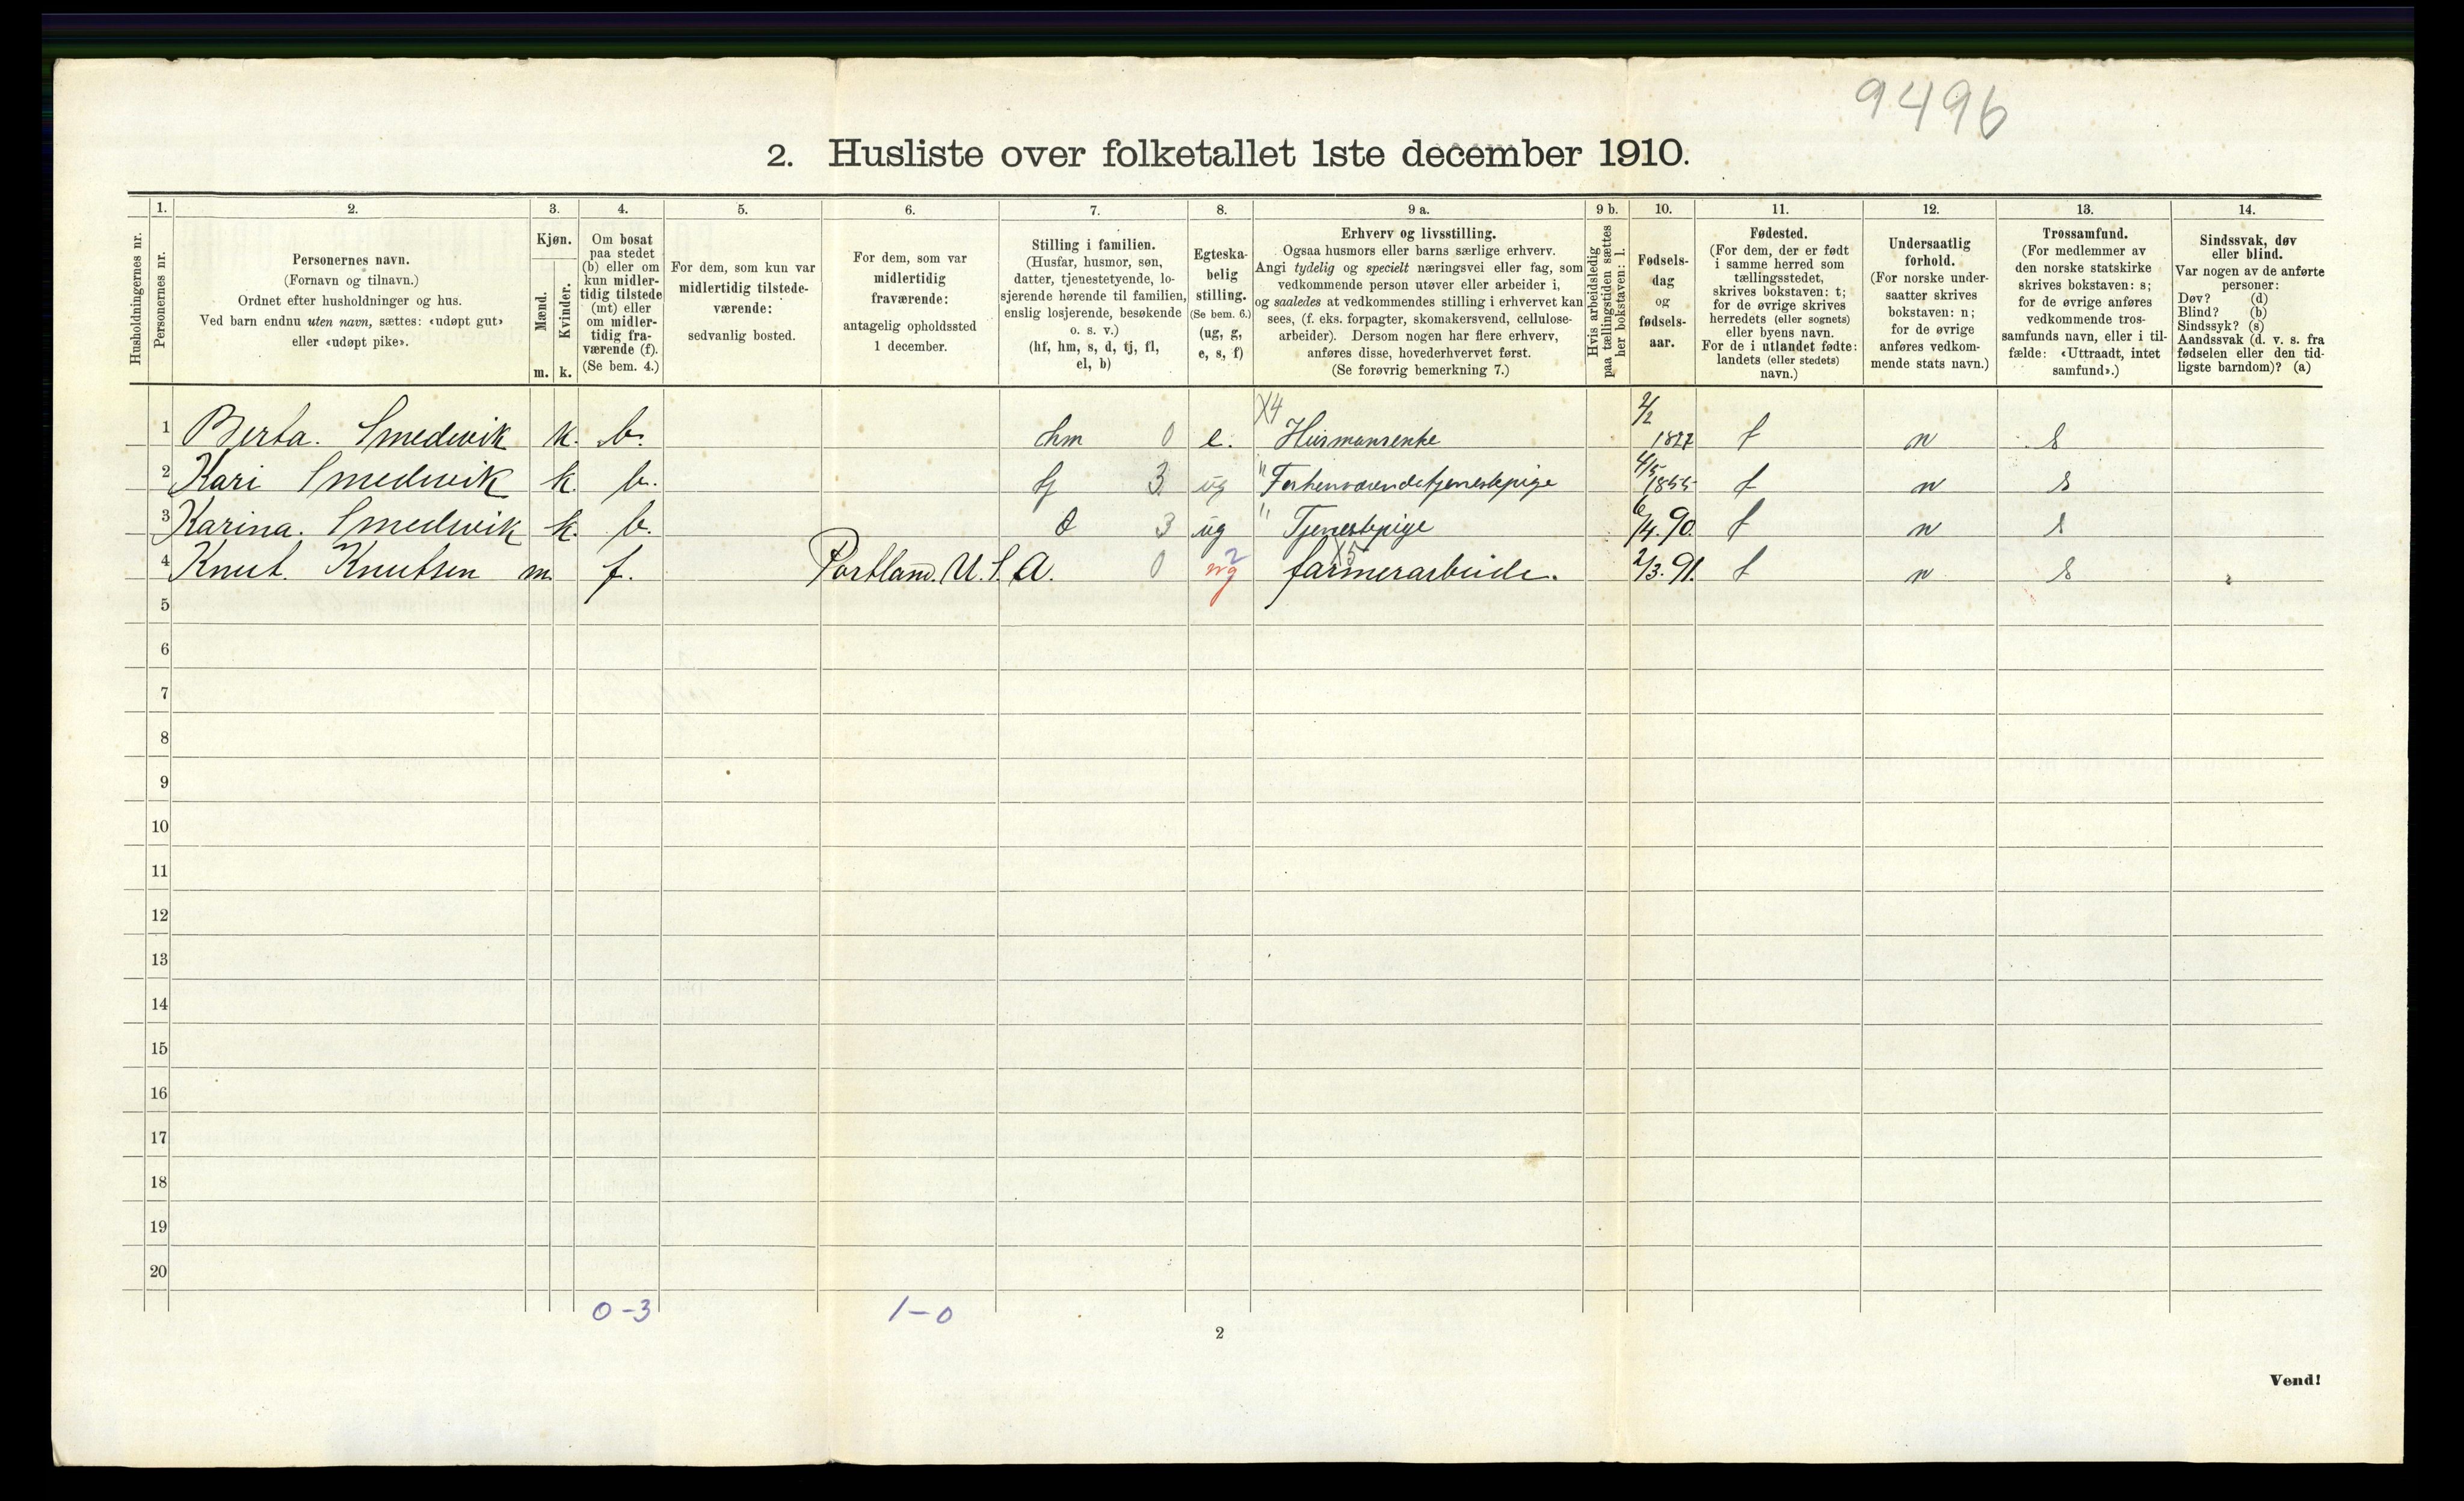 9496
2. Husliste over folketallet 1ste december 1910.
1. 2. 3. 4. 5. 6. 7. 8. 9 a. 9 b. 10. 11. 12. 13. 14.
Husholdningernes nr.
Personernes nr.
Personernes navn.
(Fornavn og tilnavn.)
Ordnet efter husholdninger og hus.
Ved barn endnu uten navn, sættes: «udøpt gut»
eller «udøpt pike».
Kjøn.
Mænd.
Kvinder.
m. k.
Om bosat
paa stedet
(b) eller om
kun midler-
tidig tilstede
(mt) eller
om midler-
tidig fra-
værende (f).
(Se bem. 4.)
For dem, som kun var
midlertidig tilstede-
værende:
sedvanlig bosted.
For dem, som var
midlertidig
fraværende:
antagelig opholdssted
1 december.
Stilling i familien.
(Husfar, husmor, søn,
datter, tjenestetyende, lo-
sjerende hørende til familien,
enslig losjerende, besøkende
o. s. v.)
(hf, hm, s, d, tj, fl,
el, b)
Egteska-
belig
stilling.
(Se bem. 6.)
(ug, g,
e, s, f)
Erhverv og livsstilling.
Ogsaa husmors eller barns særlige erhverv.
Angi tydelig og specielt næringsvei eller fag, som
vedkommende person utøver eller arbeider i,
og saaledes at vedkommendes stilling i erhvervet kan
sees, (f. eks. forpagter, skomakersvend, cellulose-
arbeider). Dersom nogen har flere erhverv,
anføres disse, hovederhvervet først.
(Se forøvrig bemerkning 7.)
Hvis arbeidsledig
paa tællingstiden sættes
her bokstaven: l.
Fødsels-
dag
og
fødsels-
aar.
Fødested.
(For dem, der er født
i samme herred som
tællingsstedet,
skrives bokstaven: t;
for de øvrige skrives
herredets (eller sognets)
eller byens navn.
For de i utlandet fødte:
landets (eller stedets)
navn.)
Undersaatlig
forhold.
(For norske under-
saatter skrives
bokstaven: n;
for de øvrige
anføres vedkom-
mende stats navn.)
Trossamfund.
(For medlemmer av
den norske statskirke
skrives bokstaven: s;
for de øvrige anføres
vedkommende tros-
samfunds navn, eller i til-
fælde: «Uttraadt, intet
samfund».)
Sindssvak, døv
eller blind.
Var nogen av de anførte
personer:
Døv? (d)
Blind? (b)
Sindssyk? (s)
Aandssvak (d. v. s. fra
fødselen eller den tid-
ligste barndom)? (a)
1 Berta. Smedvik k. b. hm 0 e. X4 Husmansenke 2/2 1827 t n s
2 Kari Smedvik k. b. tj 3 ug " Forhenværendetjenestepige 4/5 1855 t n s
3 Karina. Smedvik k. b. d 3 ug " Tjenestepige 6/4.90. t n s
4 Knut. Knutsen m. f. Portland. U.S.A. 0 ug 2 X5 farmerarbeide. 2/3.91. t n s
5
6
7
8
9
10
11
12
13
14
15
16
17
18
19
20
0-3 1-0
2
Vend!